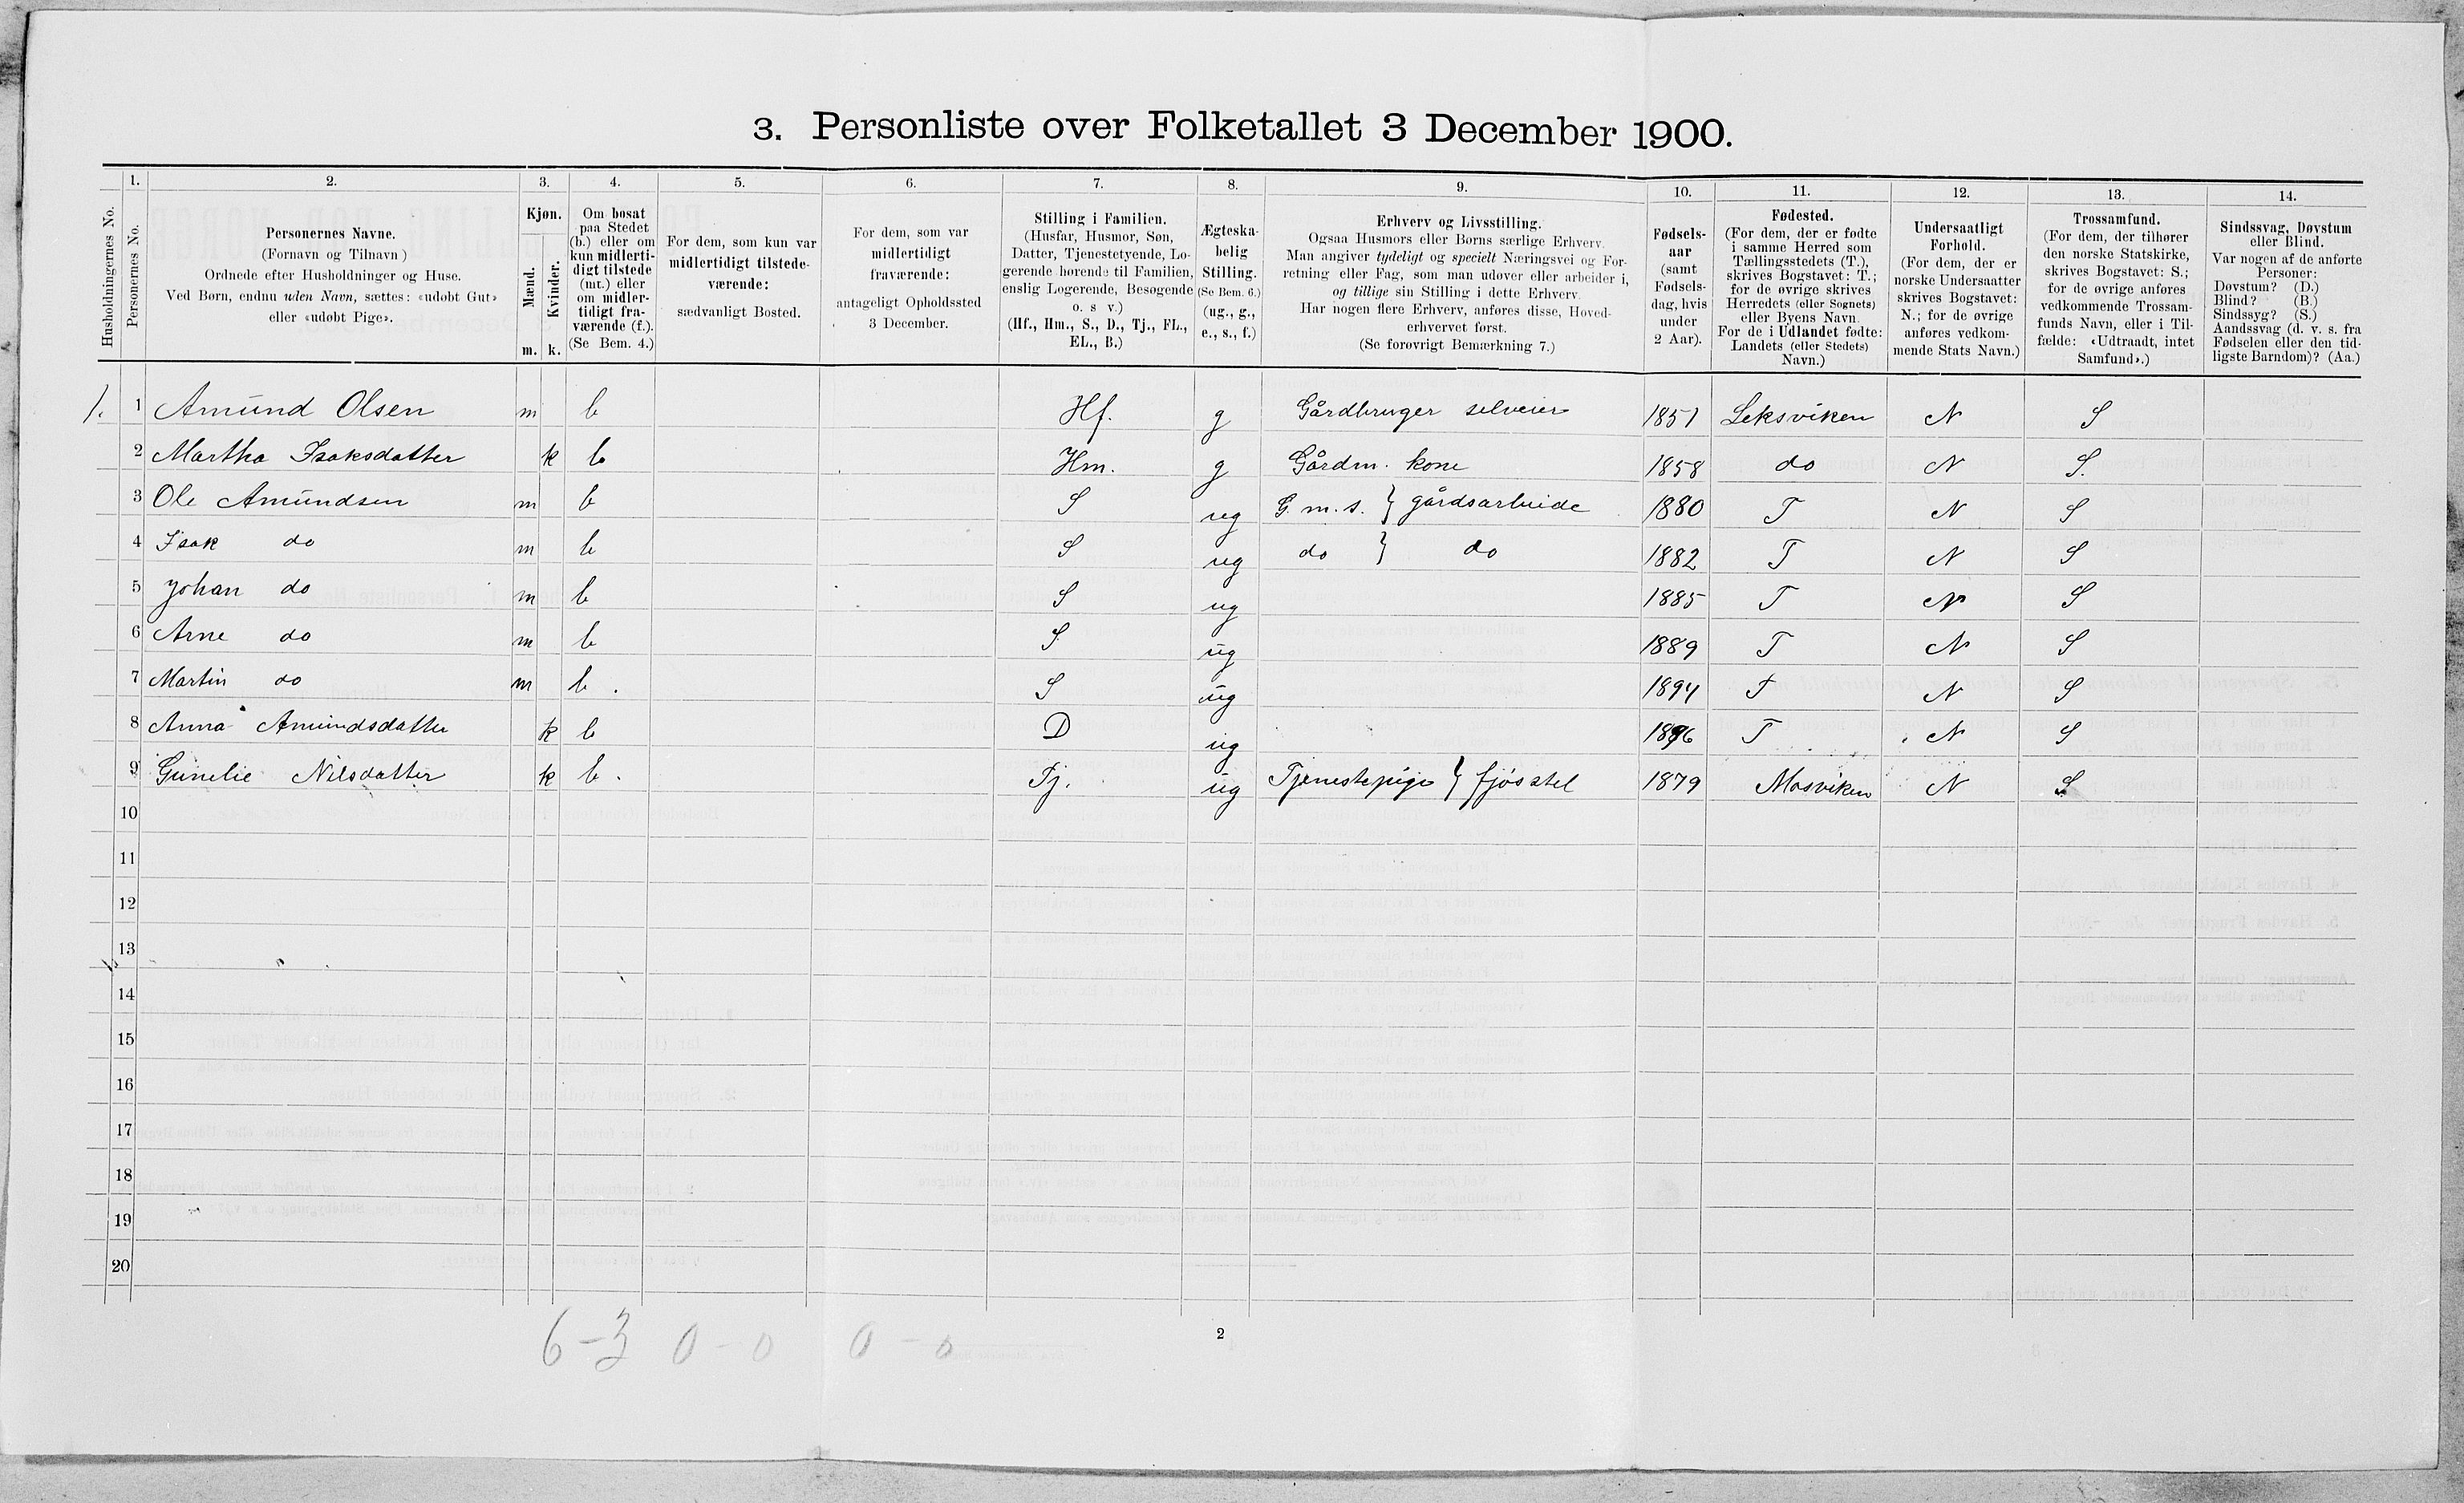 3. Personliste over Folketallet 3 December 1900.
1. 2. 3. 4. 5. 6. 7. 8. 9. 10. 11. 12. 13. 14.
Husholdningernes No.
Personernes No.
Personernes Navne.
(Fornavn og Tilnavn)
Ordnede efter Husholdninger og Huse.
Ved Børn, endnu uden Navn, sættes: «udøbt Gut»
eller «udøbt Pige».
Kjøn.
Mænd.
Kvinder.
m. k.
Om bosat
paa Stedet
(b.) eller om
kun midlerti-
digt tilstede
(mt.) eller
om midler-
tidigt fra-
værende (f.).
(Se Bem. 4.)
For dem, som kun var
midlertidigt tilstede-
værende:
sædvanligt Bosted.
For dem, som var
midlertidigt
fraværende:
antageligt Opholdssted
3 December.
Stilling i Familien.
(Husfar, Husmor, Søn,
Datter, Tjenestetyende, Lo-
gerende hørende til Familien,
enslig Logerende, Besøgende
o. s v.)
(Hf., Hm., S., D., Tj., FL.,
EL., B.)
Ægteska-
belig
Stilling.
(Se Bem. 6.)
(ug., g.,
e., s., f.)
Erhverv og Livsstilling.
Ogsaa Husmors eller Børns særlige Erhverv.
Man angiver tydeligt og specielt Næringsvei og For-
retning eller Fag, som man udøver eller arbeider i,
og tillige sin Stilling i dette Erhverv.
Har nogen flere Erhverv, anføres disse, Hoved-
erhvervet først.
(Se forøvrigt Bemærkning 7.)
Fødsels-
aar
(samt
Fødsels-
dag, hvis
under
2 Aar).
Fødested.
(For dem, der er fødte
i samme Herred som
Tællingsstedets (T.),
skrives Bogstavet: T.;
for de øvrige skrives
Herredets (eller Sognets)
eller Byens Navn.
For de i Udlandet fødte:
Landets (eller Stedets)
Navn.)
Undersaatligt
Forhold.
(For dem, der er
norske Undersaatter
skrives Bogstavet:
N.; for de øvrige
anføres vedkom-
mende Stats Navn.)
Trossamfund.
(For dem, der tilhører
den norske Statskirke,
skrives Bogstavet: S.;
for de øvrige anføres
vedkommende Trossam-
funds Navn, eller i Til-
fælde: «Udtraadt, intet
Samfund».)
Sindssvag, Døvstum
eller Blind.
Var nogen af de anførte
Personer:
Døvstum? (D.)
Blind? (B.)
Sindssyg? (S.)
Aandssvag (d. v. s. fra
Fødselen eller den tid-
ligste Barndom)? (Aa.)
1. 1 Amund Olsen m b Hf. g Gårdbruger selveier 1851 Leksviken N S
2 Martha Isaksdatter k b Hm. g Gårdm. kone 1858 do N S.
3 Ole Amundsen m b S ug G. m. s. } gårdsarbeide 1880 T N S
4 Isak do m b S ug do } do 1882 T N S
5 Johan do m b S ug 1885 T N S
6 Arne do m b S ug 1889 T N S
7 Martin do m b. S ug 1894 T N S
8 Anna Amundsdatter k b D ug 1896 T N S
9 Gunelie Nilsdatter k b. Tj. ug Tjenestepige } fjøsstel 1879 Mosviken N S
10
11
12
13
14
15
16
17
18
19
20
6-3 0-0 0-0
2